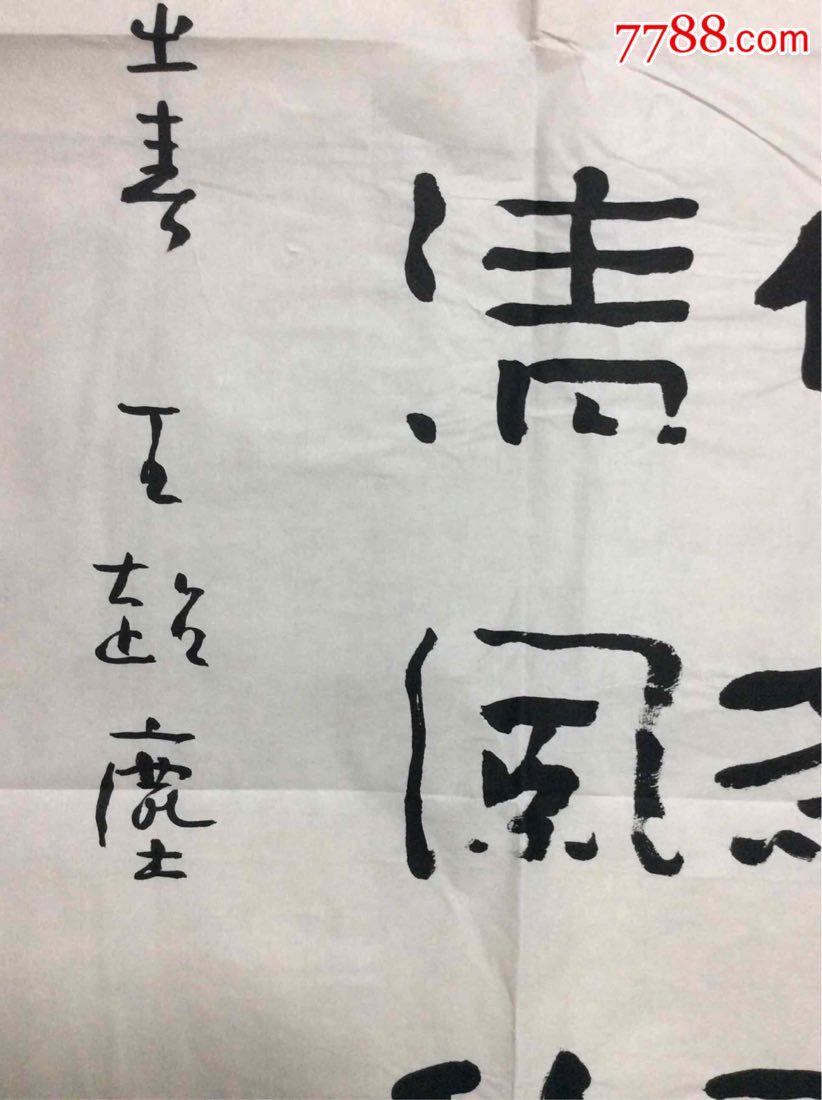 7788.com
清風
之春 王超塵